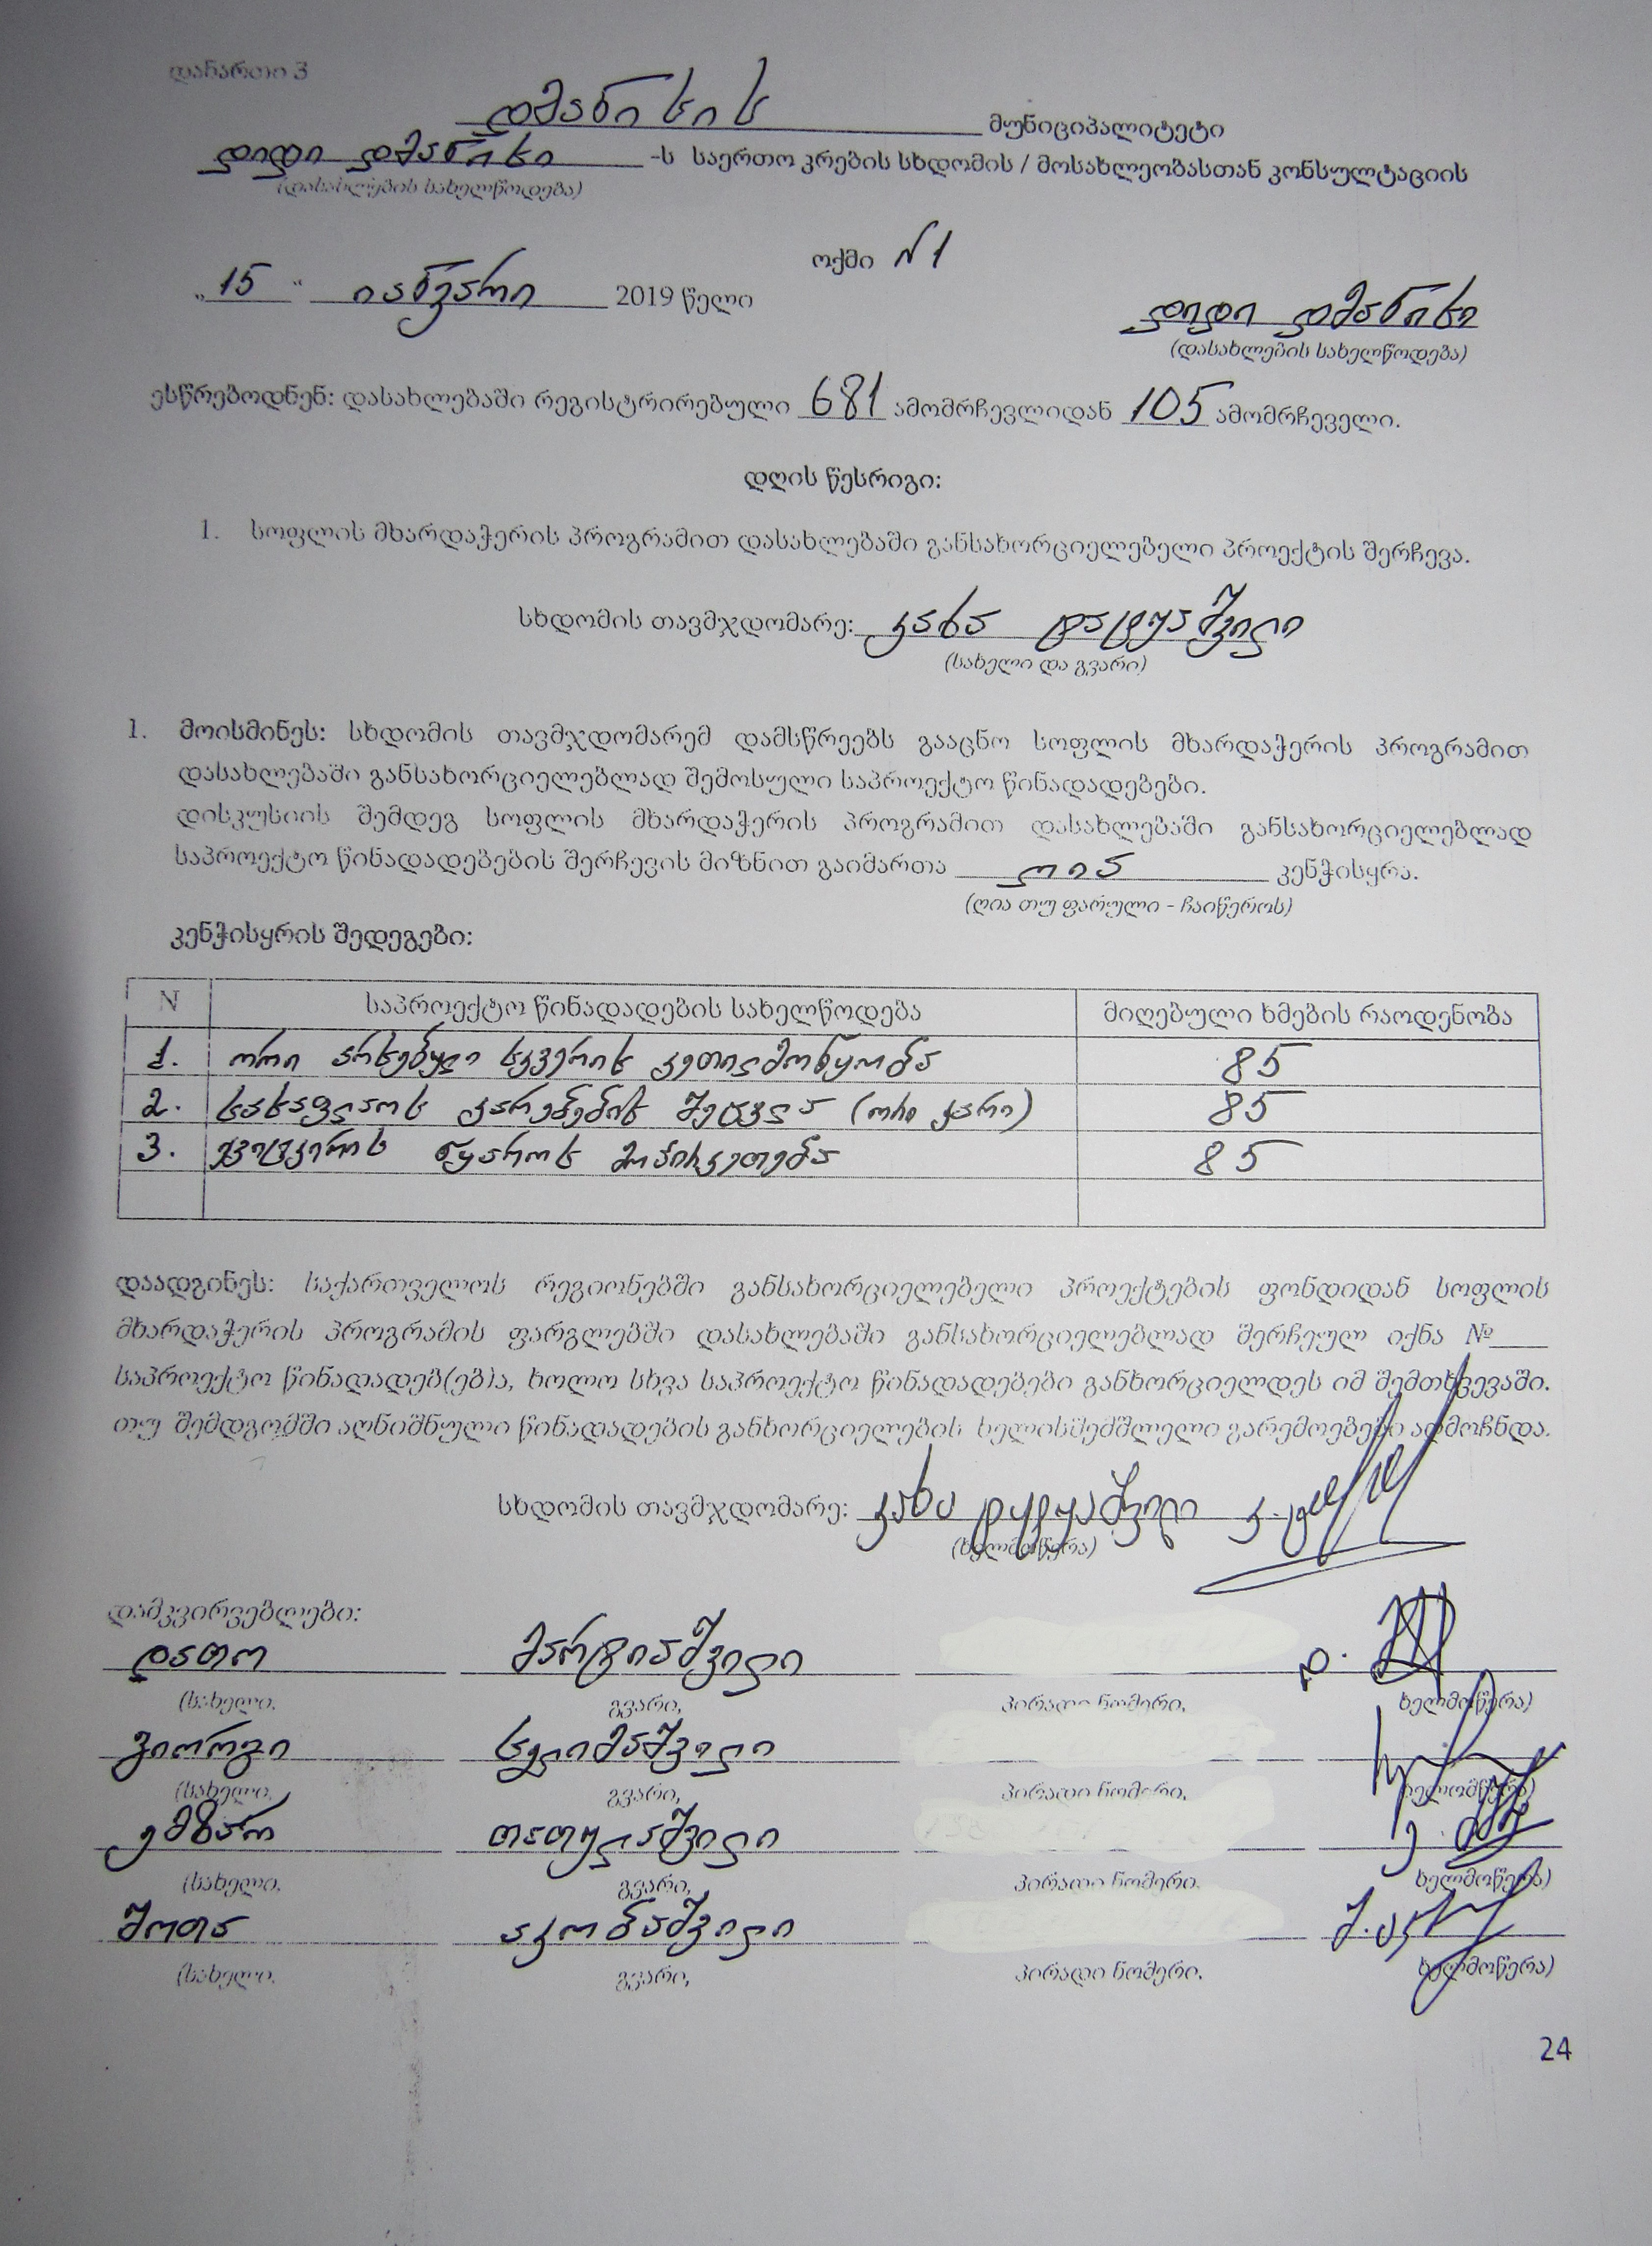 დანართი 3
დმანისის მუნიციპალიტეტი
დიდი დმანისი -ს საერთო კრების სხდომის / მოსახლეობასთან კონსულტაციის
(დასახლების სახელწოდება)
ოქმი N 1
„15" იანვარი 2019 წელი
დიდი დმანისი
(დასახლების სახელწოდება)
ესწრებოდნენ: დასახლებაში რეგისტრირებული 681 ამომრჩევლიდან 105 ამომრჩეველი.
დღის წესრიგი:
1. სოფლის მხარდაჭერის პროგრამით დასახლებაში განსახორციელებელი პროექტის შერჩევა.
სხდომის თავმჯდომარე: კახა
(სახელი და გვარი)
1. მოისმინეს: სხდომის თავმჯდომარემ დამსწრეებს გააცნო სოფლის მხარდაჭერის პროგრამით
დასახლებაში განსახორციელებლად შემოსული საპროექტო წინადადებები.
დისკუსიის შემდეგ სოფლის მხარდაჭერის პროგრამით დასახლებაში განსახორციელებლად
საპროექტო წინადადებების შერჩევის მიზნით გაიმართა ღია კენჭისყრა.
(ღია თუ ფარული - ჩაიწეროს)
კენჭისყრის შედეგები:
N საპროექტო წინადადების სახელწოდება მიღებული ხმების რაოდენობა
1. ორი არსებული სკვერის კეთილმოწყობა 85
2. სასაფლაოს კარებების შეცვლა (ორი ჭარი) 85
3. წყაროს მოპირკეთება 85
დაადგინეს: საქართველოს რეგიონებში განსახორციელებელი პროექტების ფონდიდან სოფლის
მხარდაჭერის პროგრამის ფარგლებში დასახლებაში განსახორციელებლად შერჩეულ იქნა №
საპროექტო წინადადებ(ებ)ა, ხოლო სხვა საპროექტო წინადადებები განხორციელდეს იმ შემთხვევაში.
თუ შემდგომში აღნიშნული წინადადების განხორციელების ხელისშემშლელი გარემოებები აღმოჩნდა.
სხდომის თავმჯდომარე: კახა
(ხელმოწერა)
დამკვირვებლები:
დათო მარტიაშვილი
(სახელი, გვარი, პირადი ნომერი, ხელმოწერა)
გიორგი სელიმაშვილი
(სახელი, გვარი, პირადი ნომერი, ხელმოწერა)
ემზარ თათულაშვილი
(სახელი, გვარი, პირადი ნომერი, ხელმოწერა)
შოთა აკობაშვილი
(სახელი, გვარი, პირადი ნომერი, ხელმოწერა)
24